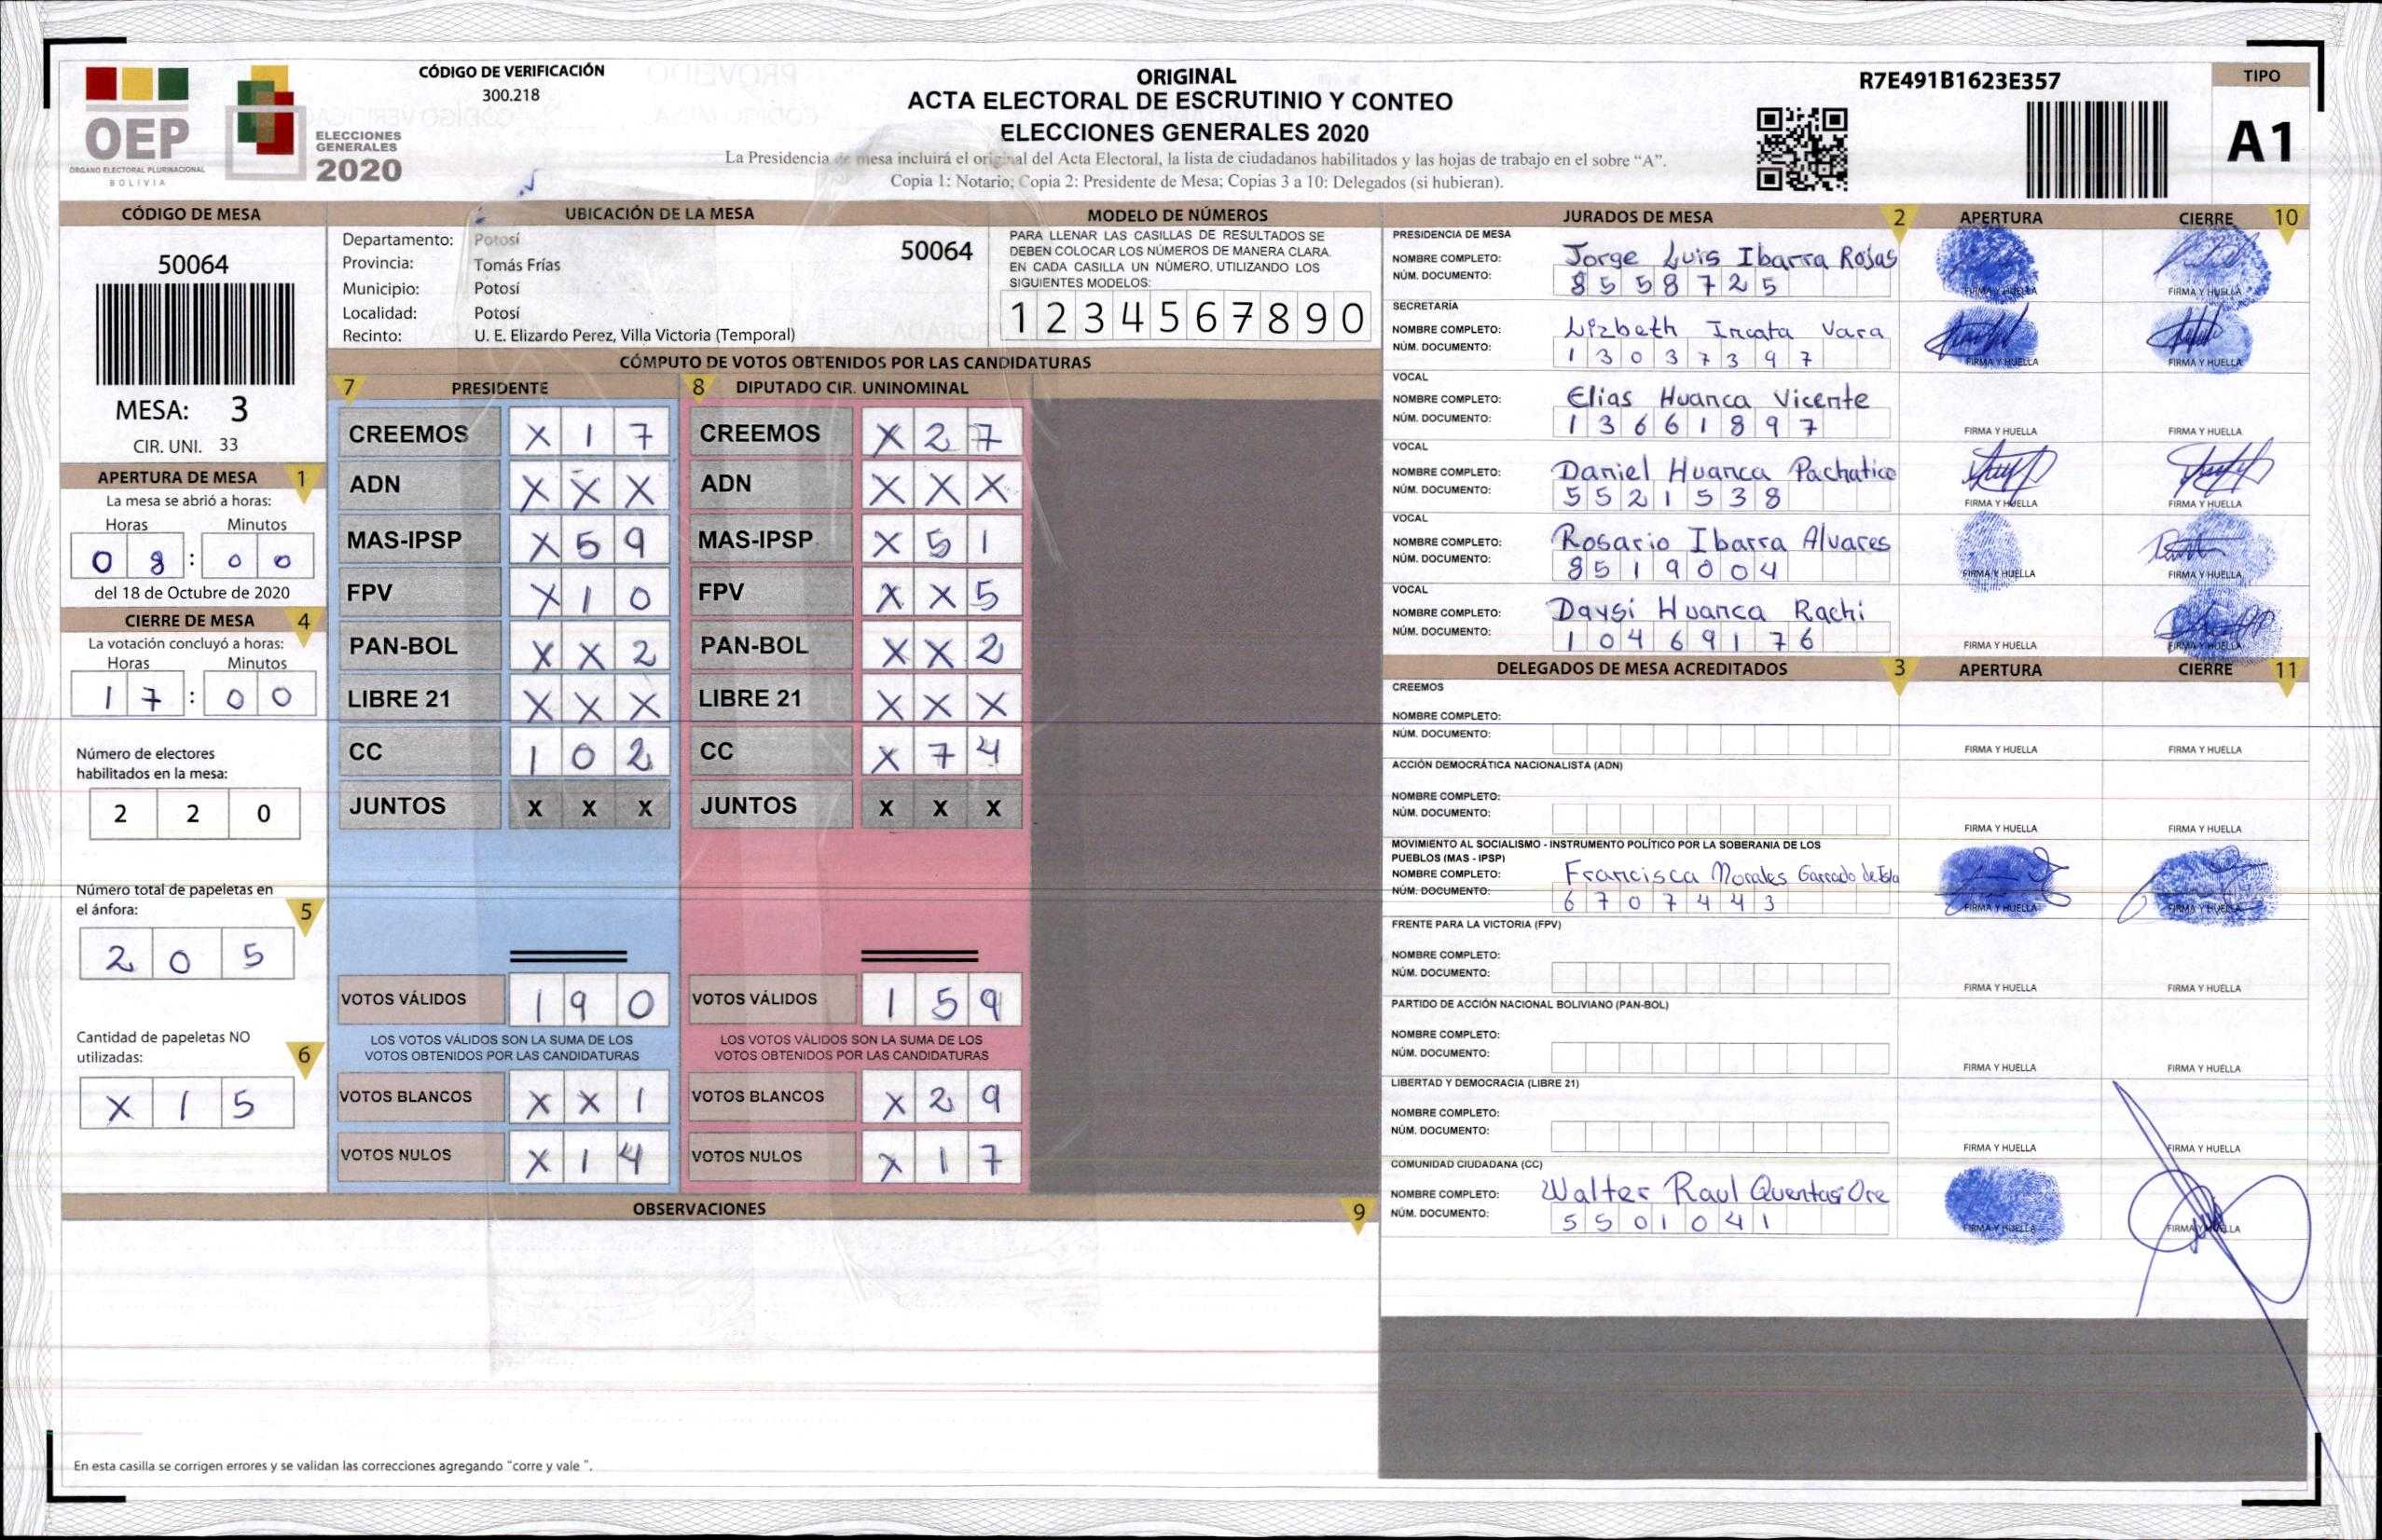 OEP
ÓRGANO ELECTORAL PLURINACIONAL
BOLIVIA
ELECCIONES
GENERALES
2020
CÓDIGO DE VERIFICACIÓN
300.218
ORIGINAL
ACTA ELECTORAL DE ESCRUTINIO Y CONTEO
ELECCIONES GENERALES 2020
La Presidencia de mesa incluirá el original del Acta Electoral, la lista de ciudadanos habilitados y las hojas de trabajo en el sobre “A”.
Copia 1: Notario; Copia 2: Presidente de Mesa; Copias 3 a 10: Delegados (si hubieran).
R7E491B1623E357
TIPO
A1
CÓDIGO DE MESA
50064
MESA: 3
CIR. UNI. 33
APERTURA DE MESA 1
La mesa se abrió a horas:
Horas Minutos
0 8 : 0 0
del 18 de Octubre de 2020
CIERRE DE MESA 4
La votación concluyó a horas:
Horas Minutos
1 7 : 0 0
Número de electores
habilitados en la mesa:
2 2 0
Número total de papeletas en
el ánfora: 5
2 0 5
Cantidad de papeletas NO
utilizadas: 6
X 1 5
UBICACIÓN DE LA MESA
Departamento: Potosí
50064
Provincia: Tomás Frías
Municipio: Potosí
Localidad: Potosí
Recinto: U. E. Elizardo Perez, Villa Victoria (Temporal)
MODELO DE NÚMEROS
PARA LLENAR LAS CASILLAS DE RESULTADOS SE
DEBEN COLOCAR LOS NÚMEROS DE MANERA CLARA.
EN CADA CASILLA UN NÚMERO, UTILIZANDO LOS
SIGUIENTES MODELOS:
1 2 3 4 5 6 7 8 9 0
CÓMPUTO DE VOTOS OBTENIDOS POR LAS CANDIDATURAS
7 PRESIDENTE 8 DIPUTADO CIR. UNINOMINAL
CREEMOS X 1 7 CREEMOS X 2 7
ADN X X X ADN X X X
MAS-IPSP X 5 9 MAS-IPSP X 5 1
FPV X 1 0 FPV X X 5
PAN-BOL X X 2 PAN-BOL X X 2
LIBRE 21 X X X LIBRE 21 X X X
CC 1 0 2 CC X 7 4
JUNTOS X X X JUNTOS X X X
VOTOS VÁLIDOS 1 9 0 VOTOS VÁLIDOS 1 5 9
LOS VOTOS VÁLIDOS SON LA SUMA DE LOS LOS VOTOS VÁLIDOS SON LA SUMA DE LOS
VOTOS OBTENIDOS POR LAS CANDIDATURAS VOTOS OBTENIDOS POR LAS CANDIDATURAS
VOTOS BLANCOS X X 1 VOTOS BLANCOS X 2 9
VOTOS NULOS X 1 4 VOTOS NULOS X 1 7
OBSERVACIONES 9
En esta casilla se corrigen errores y se validan las correcciones agregando “corre y vale ”.
JURADOS DE MESA 2 APERTURA CIERRE 10
PRESIDENCIA DE MESA
NOMBRE COMPLETO: Jorge Luis Ibarra Rojas
NÚM. DOCUMENTO: 8 5 5 8 7 2 5
FIRMA Y HUELLA FIRMA Y HUELLA
SECRETARÍA
NOMBRE COMPLETO: Lizbeth Incata Vara
NÚM. DOCUMENTO: 1 3 0 3 7 3 9 7
FIRMA Y HUELLA FIRMA Y HUELLA
VOCAL
NOMBRE COMPLETO: Elias Huanca Vicente
NÚM. DOCUMENTO: 1 3 6 6 1 8 9 7
FIRMA Y HUELLA FIRMA Y HUELLA
VOCAL
NOMBRE COMPLETO: Daniel Huanca Pachatico
NÚM. DOCUMENTO: 5 5 2 1 5 3 8
FIRMA Y HUELLA FIRMA Y HUELLA
VOCAL
NOMBRE COMPLETO: Rosario Ibarra Alvares
NÚM. DOCUMENTO: 8 5 1 9 0 0 4
FIRMA Y HUELLA FIRMA Y HUELLA
VOCAL
NOMBRE COMPLETO: Daysi Huanca Rachi
NÚM. DOCUMENTO: 1 0 4 6 9 1 7 6
FIRMA Y HUELLA FIRMA Y HUELLA
DELEGADOS DE MESA ACREDITADOS 3 APERTURA CIERRE 11
CREEMOS
NOMBRE COMPLETO:
NÚM. DOCUMENTO:
FIRMA Y HUELLA FIRMA Y HUELLA
ACCIÓN DEMOCRÁTICA NACIONALISTA (ADN)
NOMBRE COMPLETO:
NÚM. DOCUMENTO:
FIRMA Y HUELLA FIRMA Y HUELLA
MOVIMIENTO AL SOCIALISMO - INSTRUMENTO POLÍTICO POR LA SOBERANIA DE LOS
PUEBLOS (MAS - IPSP)
NOMBRE COMPLETO: Francisca Morales Garrado de Isla
NÚM. DOCUMENTO: 6 7 0 7 4 4 3
FIRMA Y HUELLA FIRMA Y HUELLA
FRENTE PARA LA VICTORIA (FPV)
NOMBRE COMPLETO:
NÚM. DOCUMENTO:
FIRMA Y HUELLA FIRMA Y HUELLA
PARTIDO DE ACCIÓN NACIONAL BOLIVIANO (PAN-BOL)
NOMBRE COMPLETO:
NÚM. DOCUMENTO:
FIRMA Y HUELLA FIRMA Y HUELLA
LIBERTAD Y DEMOCRACIA (LIBRE 21)
NOMBRE COMPLETO:
NÚM. DOCUMENTO:
FIRMA Y HUELLA FIRMA Y HUELLA
COMUNIDAD CIUDADANA (CC)
NOMBRE COMPLETO: Walter Raul Quentas Ore
NÚM. DOCUMENTO: 5 5 0 1 0 4 1
FIRMA Y HUELLA FIRMA Y HUELLA